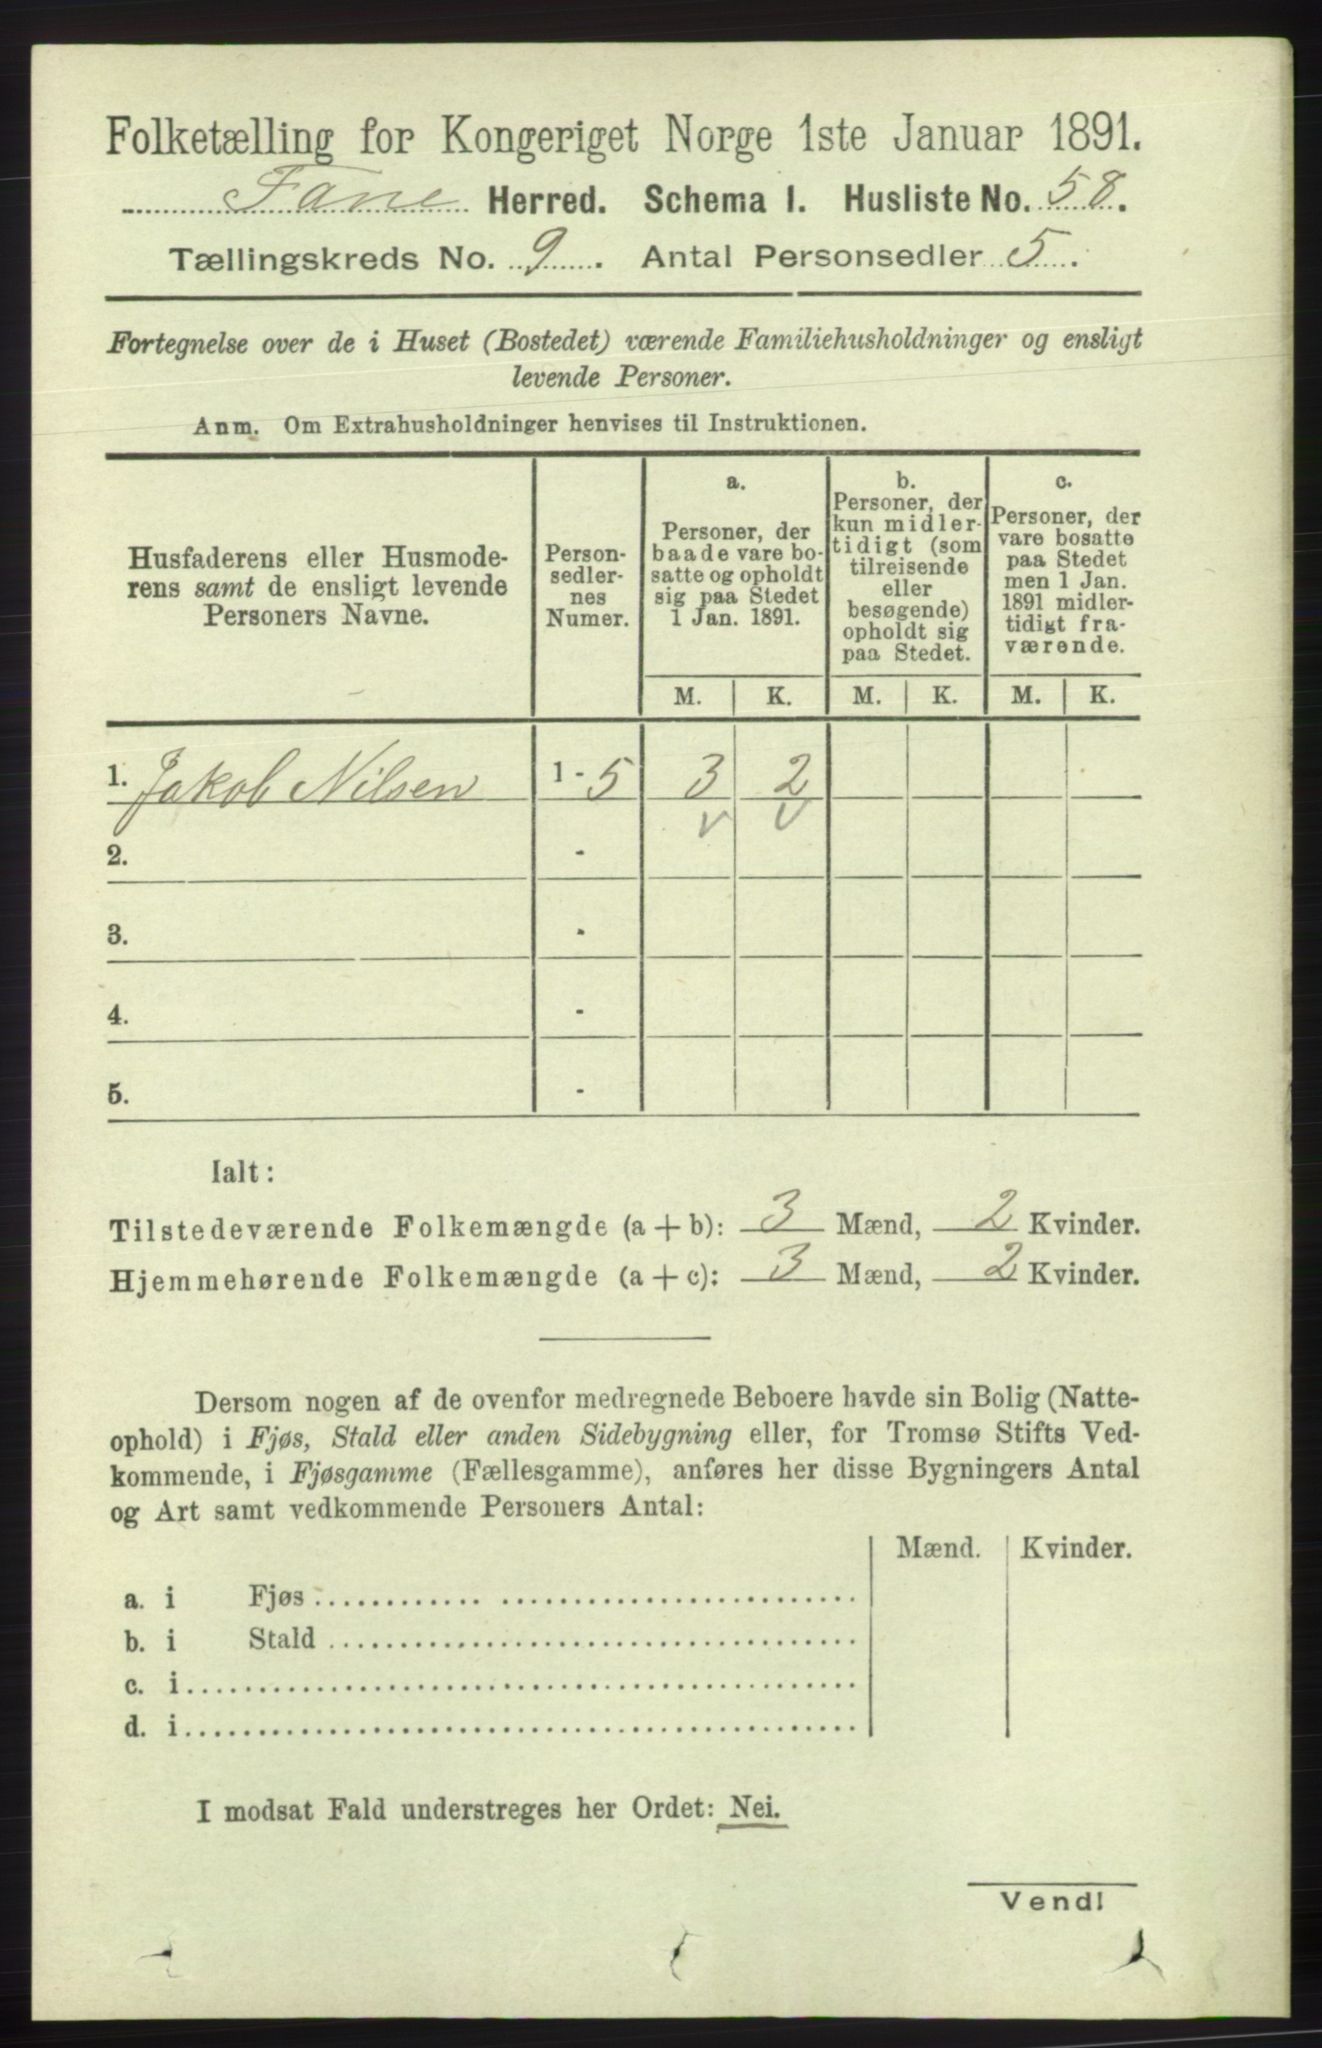 Folketælling for Kongeriget Norge 1ste Januar 1891.
Fane Herred. Schema I. Husliste No. 58.
Tællingskreds No. 9. Antal Personsedler 5.
Fortegnelse over de i Huset (Bostedet) værende Familiehusholdninger og ensligt
levende Personer.
Anm. Om Extrahusholdninger henvises til Instruktionen.
Husfaderens eller Husmode-
rens samt de ensligt levende
Personers Navne.
Person-
sedler-
nes
Numer.
a.
Personer, der
baade vare bo-
satte og opholdt
sig paa Stedet
1 Jan. 1891.
b.
Personer, der
kun midler-
tidigt (som
tilreisende
eller
besøgende)
opholdt sig
paa Stedet.
c.
Personer, der
vare bosatte
paa Stedet
men 1 Jan.
1891 midler-
tidigt fra-
værende.
M. K. M. K. M. K.
1. Jakob Nilsen 1 - 5 3 2
v v
2. -
3. -
4. -
5. -
Ialt:
Tilstedeværende Folkemængde (a + b): 3 Mænd, 2 Kvinder.
Hjemmehørende Folkemængde (a + c): 3 Mænd, 2 Kvinder.
Dersom nogen af de ovenfor medregnede Beboere havde sin Bolig (Natte-
ophold) i Fjøs, Stald eller anden Sidebygning eller, for Tromsø Stifts Ved-
kommende, i Fjøsgamme (Fællesgamme), anføres her disse Bygningers Antal
og Art samt vedkommende Personers Antal:
Mænd. Kvinder.
a. i Fjøs
b. i Stald
c. i
d. i
I modsat Fald understreges her Ordet: Nei.
Vend!